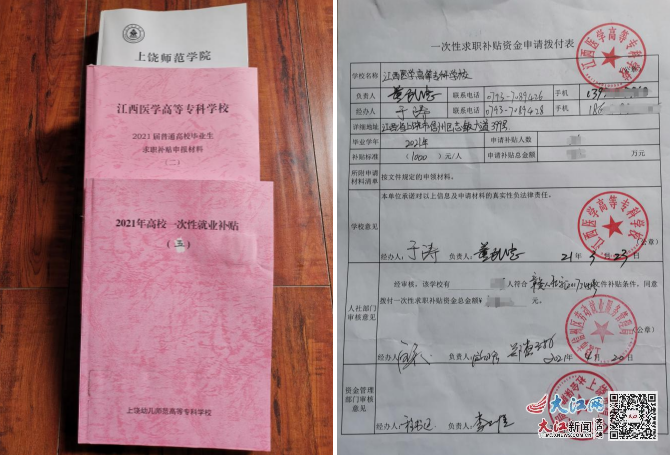 上饶师范学院
江西医学高等专科学校
2021届普通高校毕业生
求职补贴申报材料
（二）
2021年高校一次性就业补贴
（五）
上饶幼儿师范高等专科学校
一次性求职补贴资金申请拨付表
学校名称 江西医学高等专科学校
负责人 联系电话 0793-7089426 手机 139
经办人 于涛 联系电话 0793-7089428 手机 186
详细地址 江西省上饶市信州区志敏大道399号
毕业学年 2021年 申请补贴人数
补贴标准 （1000）元/人 申请补贴总金额 万元
所附申请材料清单 按文件规定的申领材料。
学校意见
本单位承诺对以上信息及申请材料的真实性负法律责任。
（公章）
经办人： 于涛 负责人： 21年 3月 23日
江西医学高等专科学校
人社部门审核意见
经审核，该学校有 人符合 文件补贴条件，同意
拨付一次性求职补贴资金总金额¥ 元。
（公章）
经办人： 负责人： 2021年 4月 20日
资金管理部门审核意见
经办人： 负责人：
大江网
大江新闻